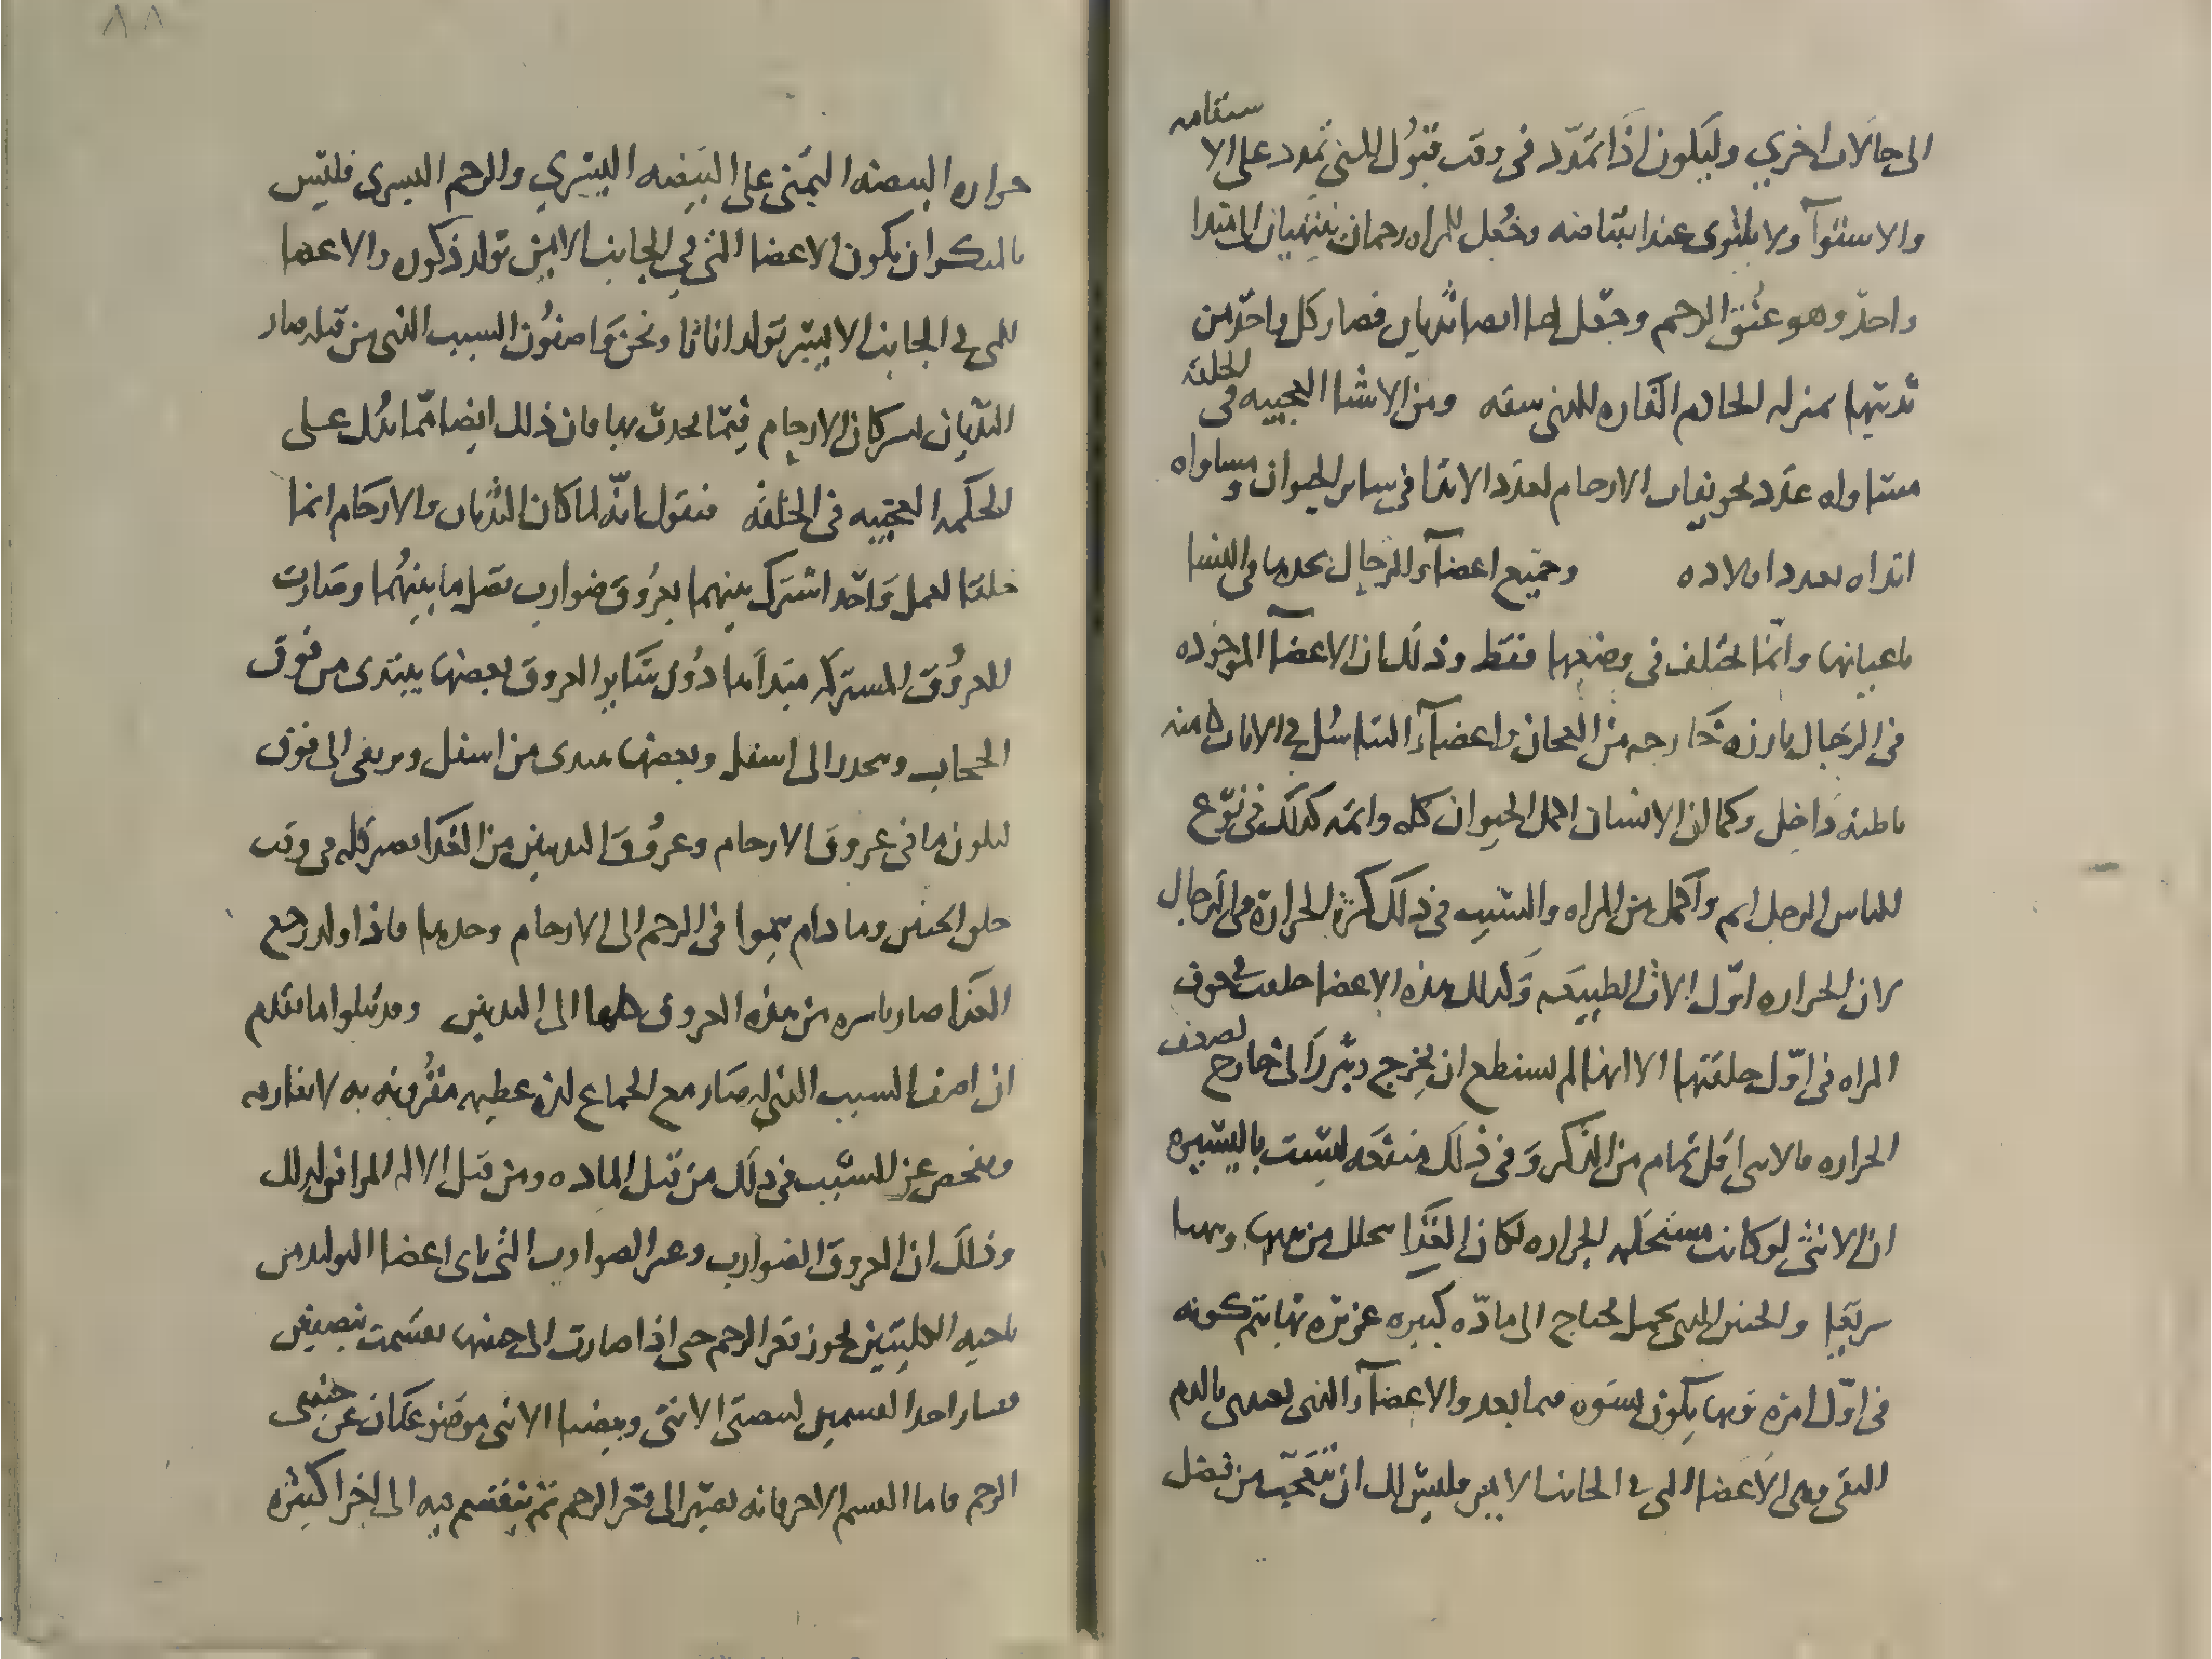 الى حالات اخري وليكون اذا تمدد فى وقت قبول المنى تمدد على الاستقامه
والاستوآ ولا يلتوى عند انقباضه وجعل للمراه رحمان ينتهيان الى مبتدا
واحد وهو عنق الرحم وجعل لها ايضا ثديان فصار كل واحد من
ثدييها بمنزله الخادم القاره للذى سفه ومن الاشيا العجيبه فى الخلقه
مساواه عدد تجويفات الارحام لعدد الاثدا فى ساير الحيوان ومساواه
اثداه بعدد اولاده وجميع اعضآء الرجال تجدها فى النسا
باعيانها وانما تختلف فى وضعها فقط وذلك ان الاعضآ الموجوده
فى الرجال بارزه خارجه من العجان واعضآء التناسل فى الاناث كامنه
باطنه داخل وكما ان الانسان اكمل الحيوان كله واتمه كذلك فى نوع
الناس الرجل اتم واكمل من المراه والسبب فى ذلك كثرة الحرارة فى الرجال
لان الحراره اول الات الطبيعه وكذلك هذه الاعضا خلقت فى جوف
المراه فى اول خلقتها الا انها لم تستطع ان تخرج وتبرز الى خارج لضعف
الحراره فالانثى اقل تمام من الذكر وفى ذلك منفعه ليست باليسيره
ان الانثى لو كانت مستحكمه الحراره لكان الغذا يتحلل من بدنها
سريعا والجنين الذى يحمل يحتاج الى مادة كبيره غزيره بها يتم كونه
فى اول امره وبها يكون نشوه فيما بعد والاعضآء التى تغتذى بالدم
النقى وهى الاعضا التى فى الجانب الايمن فليس لك ان تتعجب من فضل
حراره البيضه اليمنى على البيضه اليسري والرحم اليسرى فليس
بالمنكر ان يكون الاعضا التى فى الجانب الايمن تولد ذكوره والاعضا
التى فى الجانب الايسر تولد اناثا ونحن واصفون السبب الذى من قبله صار
الثديان يشركان الارحام فيما يحدث بها فان ذلك ايضا مما يدل على
الحكمه العجيبه فى الخلقه فنقول انه لما كان الثديان والارحام انما
خلقا لعمل واحد اشترك بينهما بعروق ضوارب تصل ما بينهما وصارت
العروق المشتركه مبتداها دون ساير العروق بعضها يبتدى من فوق
الحجاب وينحدر الى اسفل وبعضها يبتدى من اسفل ويرتقى الى فوق
ليكون ما فى عروق الارحام وعروق الثديين من الغذا يصير كله فى وقت
خلق الجنين وما دام ينموا فى الرحم الى الارحام وحدها فاذا ولد رجع
الغذا صار باسره من هذه العروق كلها الى الثديين وقد يتلوا ما تقدم
ان اصف السبب الذى له صار مع الجماع لذه عظيمه مقرونه به لا تفارقه
ونفحص عن السبب فى ذلك من قبل الماده ومن قبل الاله الموافق لذلك
وذلك ان العروق الضوارب وغير الضوارب التى تاى اعضا التوليد من
ناحيه الكليتين نحوز قعر الرحم حتى اذا صارت الى جنبها تقسمت بنصفين
فصار احد القسمين لبيضتى الانثى وبيضتا الانثى موضوعتان عن جنبتى
الرحم فاما القسم الاخر فانه يصير الى قعر الرحم ثم ينقسم فيه الى اجزا كثيره